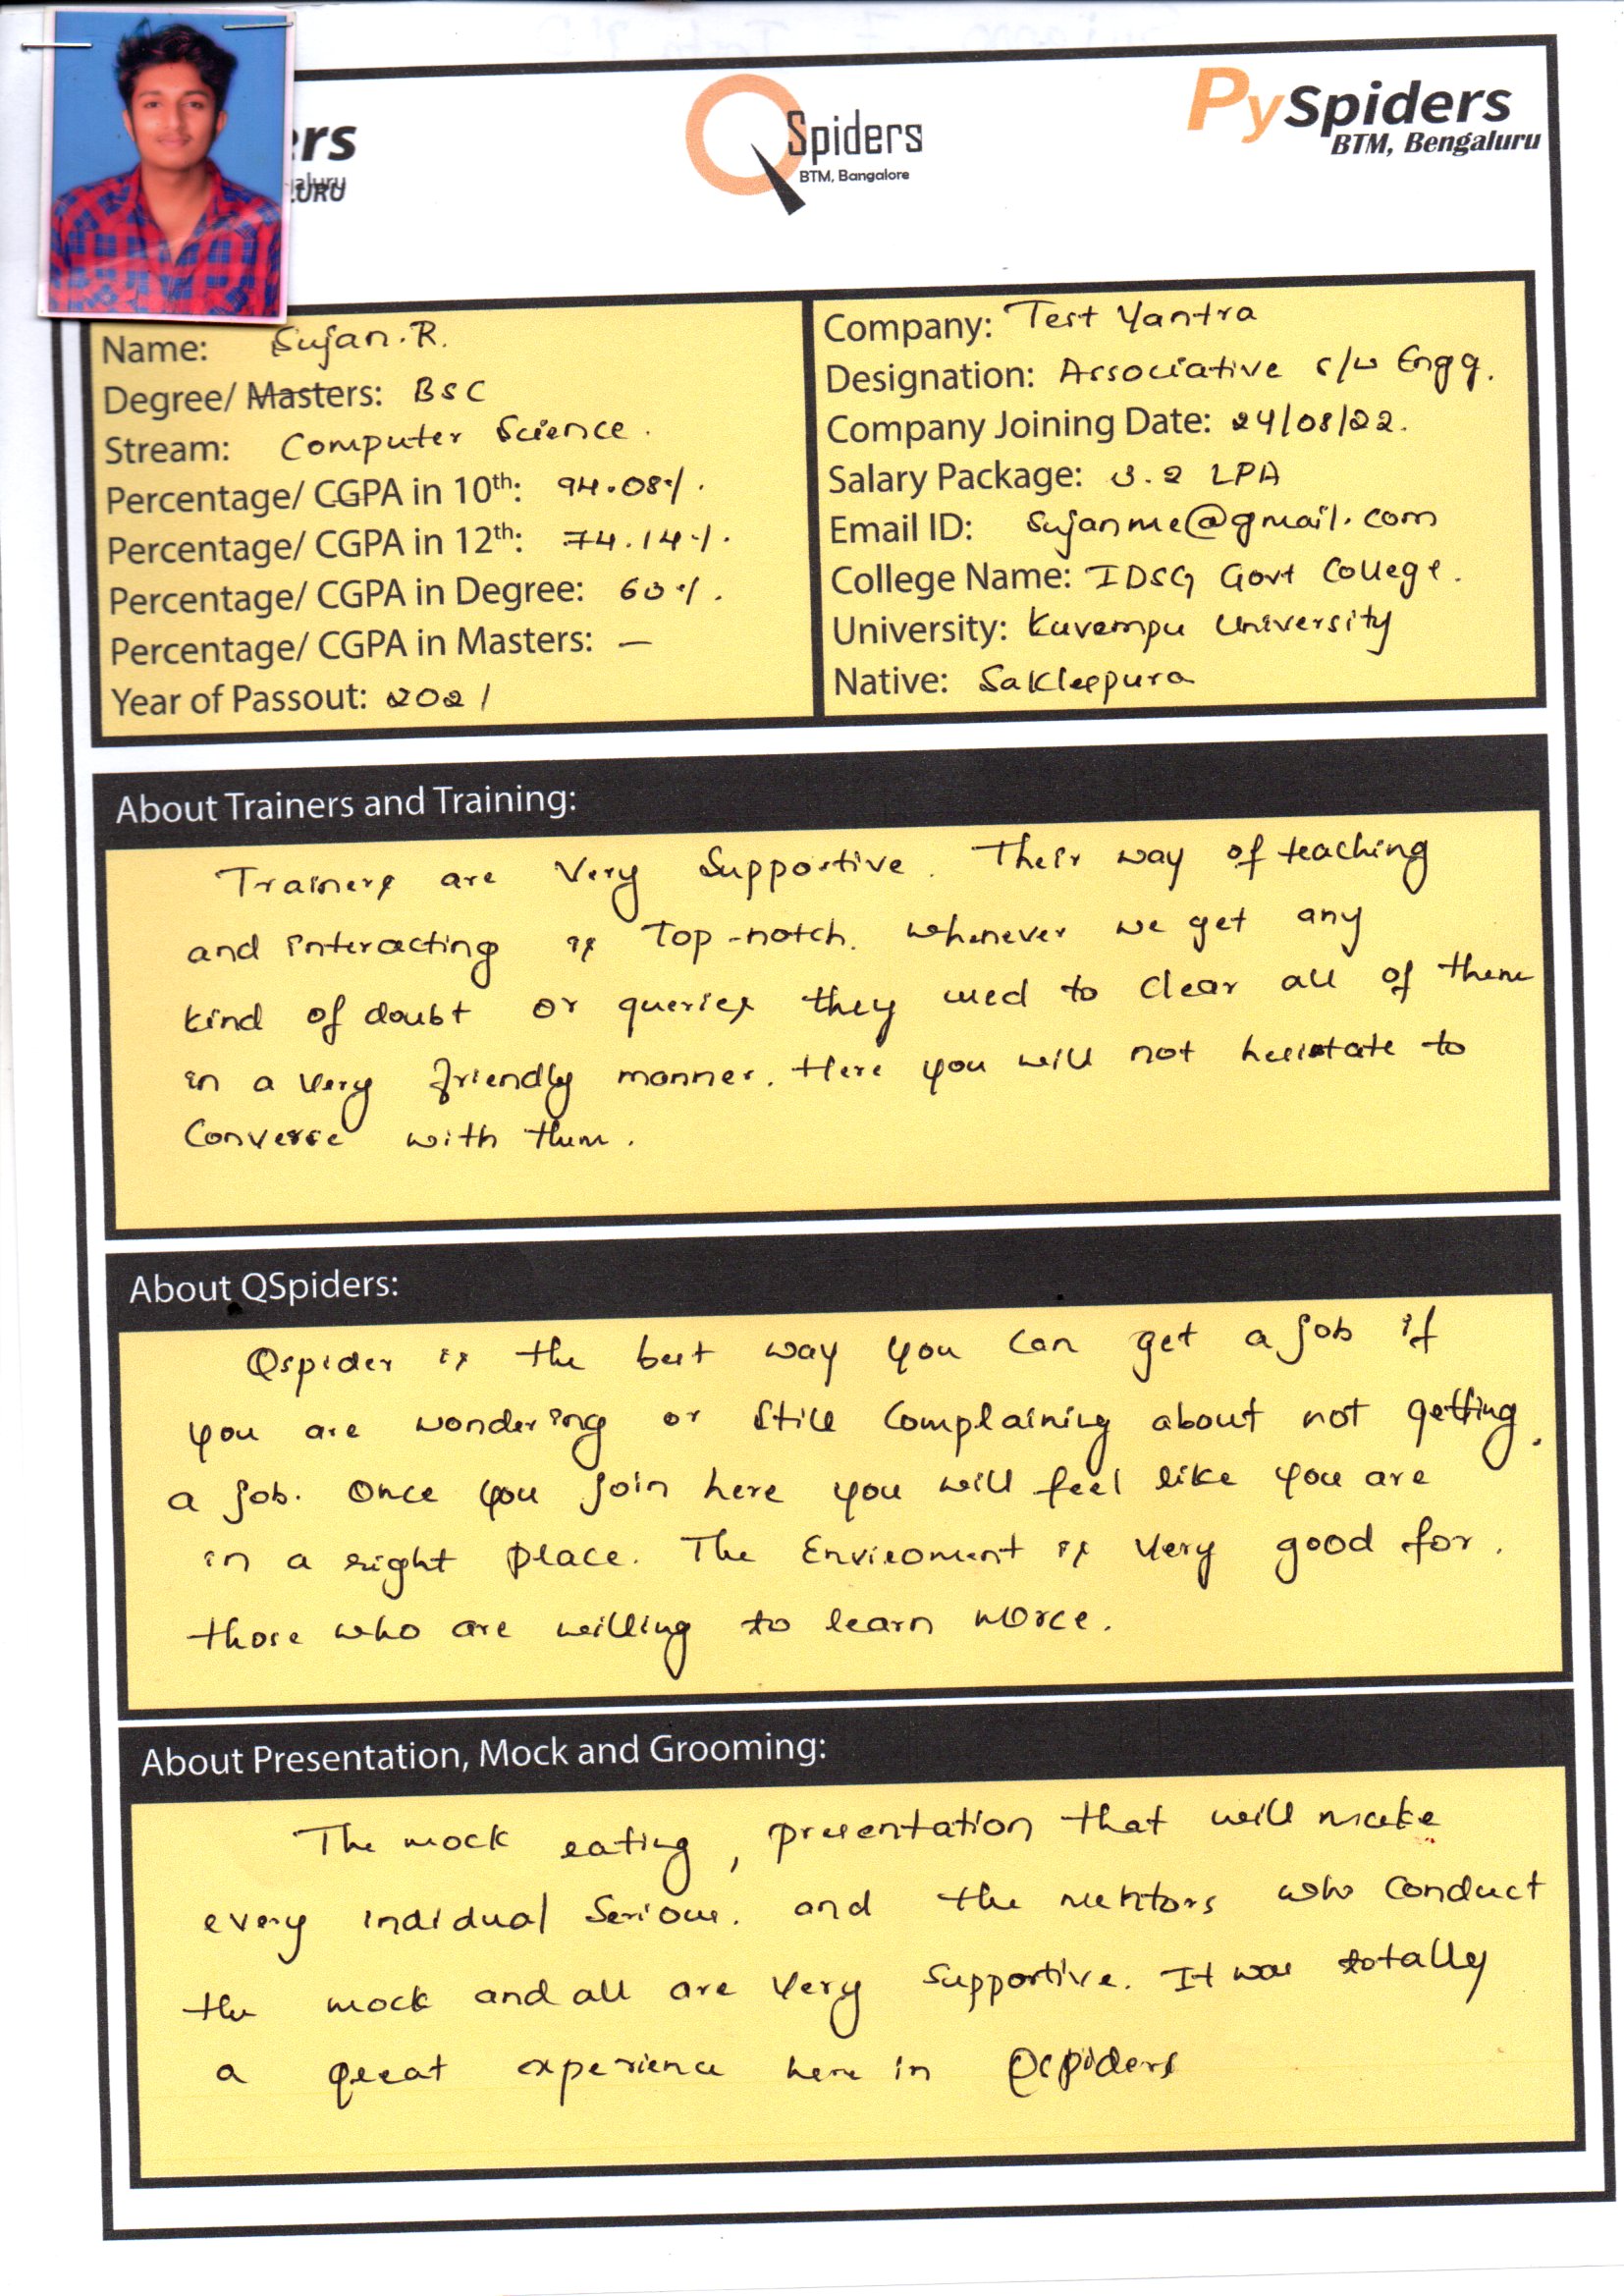 ers
aluru
LURU
QSpiders
BTM, Bangalore
PySpiders
BTM, Bengaluru
Name: Sujan.R.
Degree/ Masters: BSC
Stream: Computer Science.
Percentage/ CGPA in 10th: 94.08%.
Percentage/ CGPA in 12th: 74.14%.
Percentage/ CGPA in Degree: 60%.
Percentage/ CGPA in Masters: —
Year of Passout: 2021
Company: Test Yantra
Designation: Associative s/w Engg.
Company Joining Date: 24/08/22.
Salary Package: 3.2 LPA
Email ID: sujanme@gmail.com
College Name: IDSG Govt College.
University: Kuvempu University
Native: Sakleepura
About Trainers and Training:
Trainers are Very Supportive. Their way of teaching
and interacting is Top-notch. Whenever we get any
kind of doubt or queries they used to clear all of them
in a very friendly manner. Here you will not hesitate to
Converse with them.
About QSpiders:
Qspider is the best way you can get a job if
you are wondering or still complaining about not getting.
a job. Once you join here you will feel like you are
in a right place. The Enviroment is very good for.
those who are willing to learn more.
About Presentation, Mock and Grooming:
The mock eating, presentation that will make
every indidual Serious. and the mentors who conduct
the mock and all are very supportive. It was totally
a great experience here in Qspiders